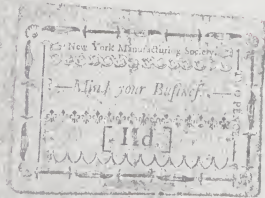 New York Manufacturing Society.
—Mind your Busineſs.—
[IId.]
TWO PENCE